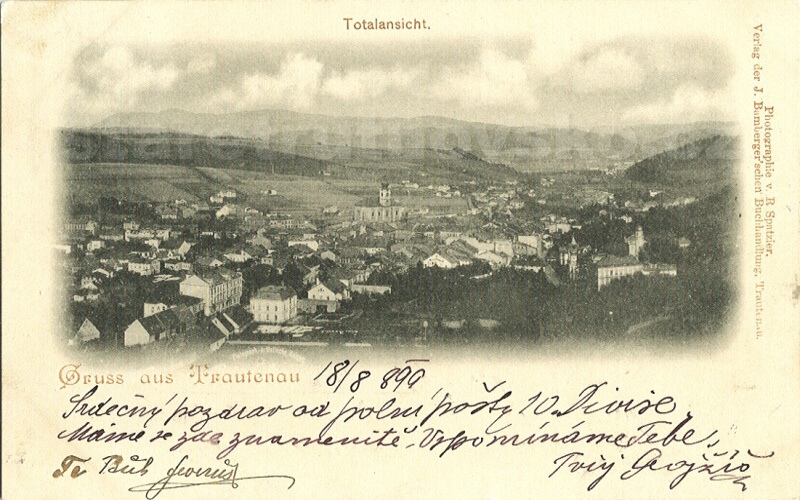 Totalansicht.
Photographie v. R. Spatzier.
Verlag der J. Bamberger'schen Buchhandlung, Trautenau.
Gruss aus Trautenau 18/8 899
Srdečný pozdrav od polní pošty 10. Divise.
Máme se zde znamenitě. Vzpomínáme Tebe.
Tvůj
Te Bůh